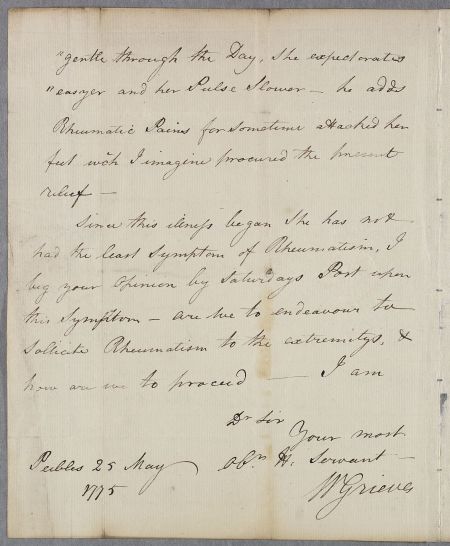 "gentle through the Day, She expectorates
"easyer and her Pulse Slower — he adds
Rheumatic Pains for Sometime attacked her
feet wch I imagine procured the present
relief —
Since this illness began She has not
had the least Symptom of Rheumatism, I
beg your Opinion by Saturdays Post upon
this Symptom — are we to endeavour to
Sollicite Rheumatism to the extremitys, &
how are we to proceed — I am
Dr Sir
Your most
Peebles 25 May
Obt H. Servant —
1775
Wm Grieve